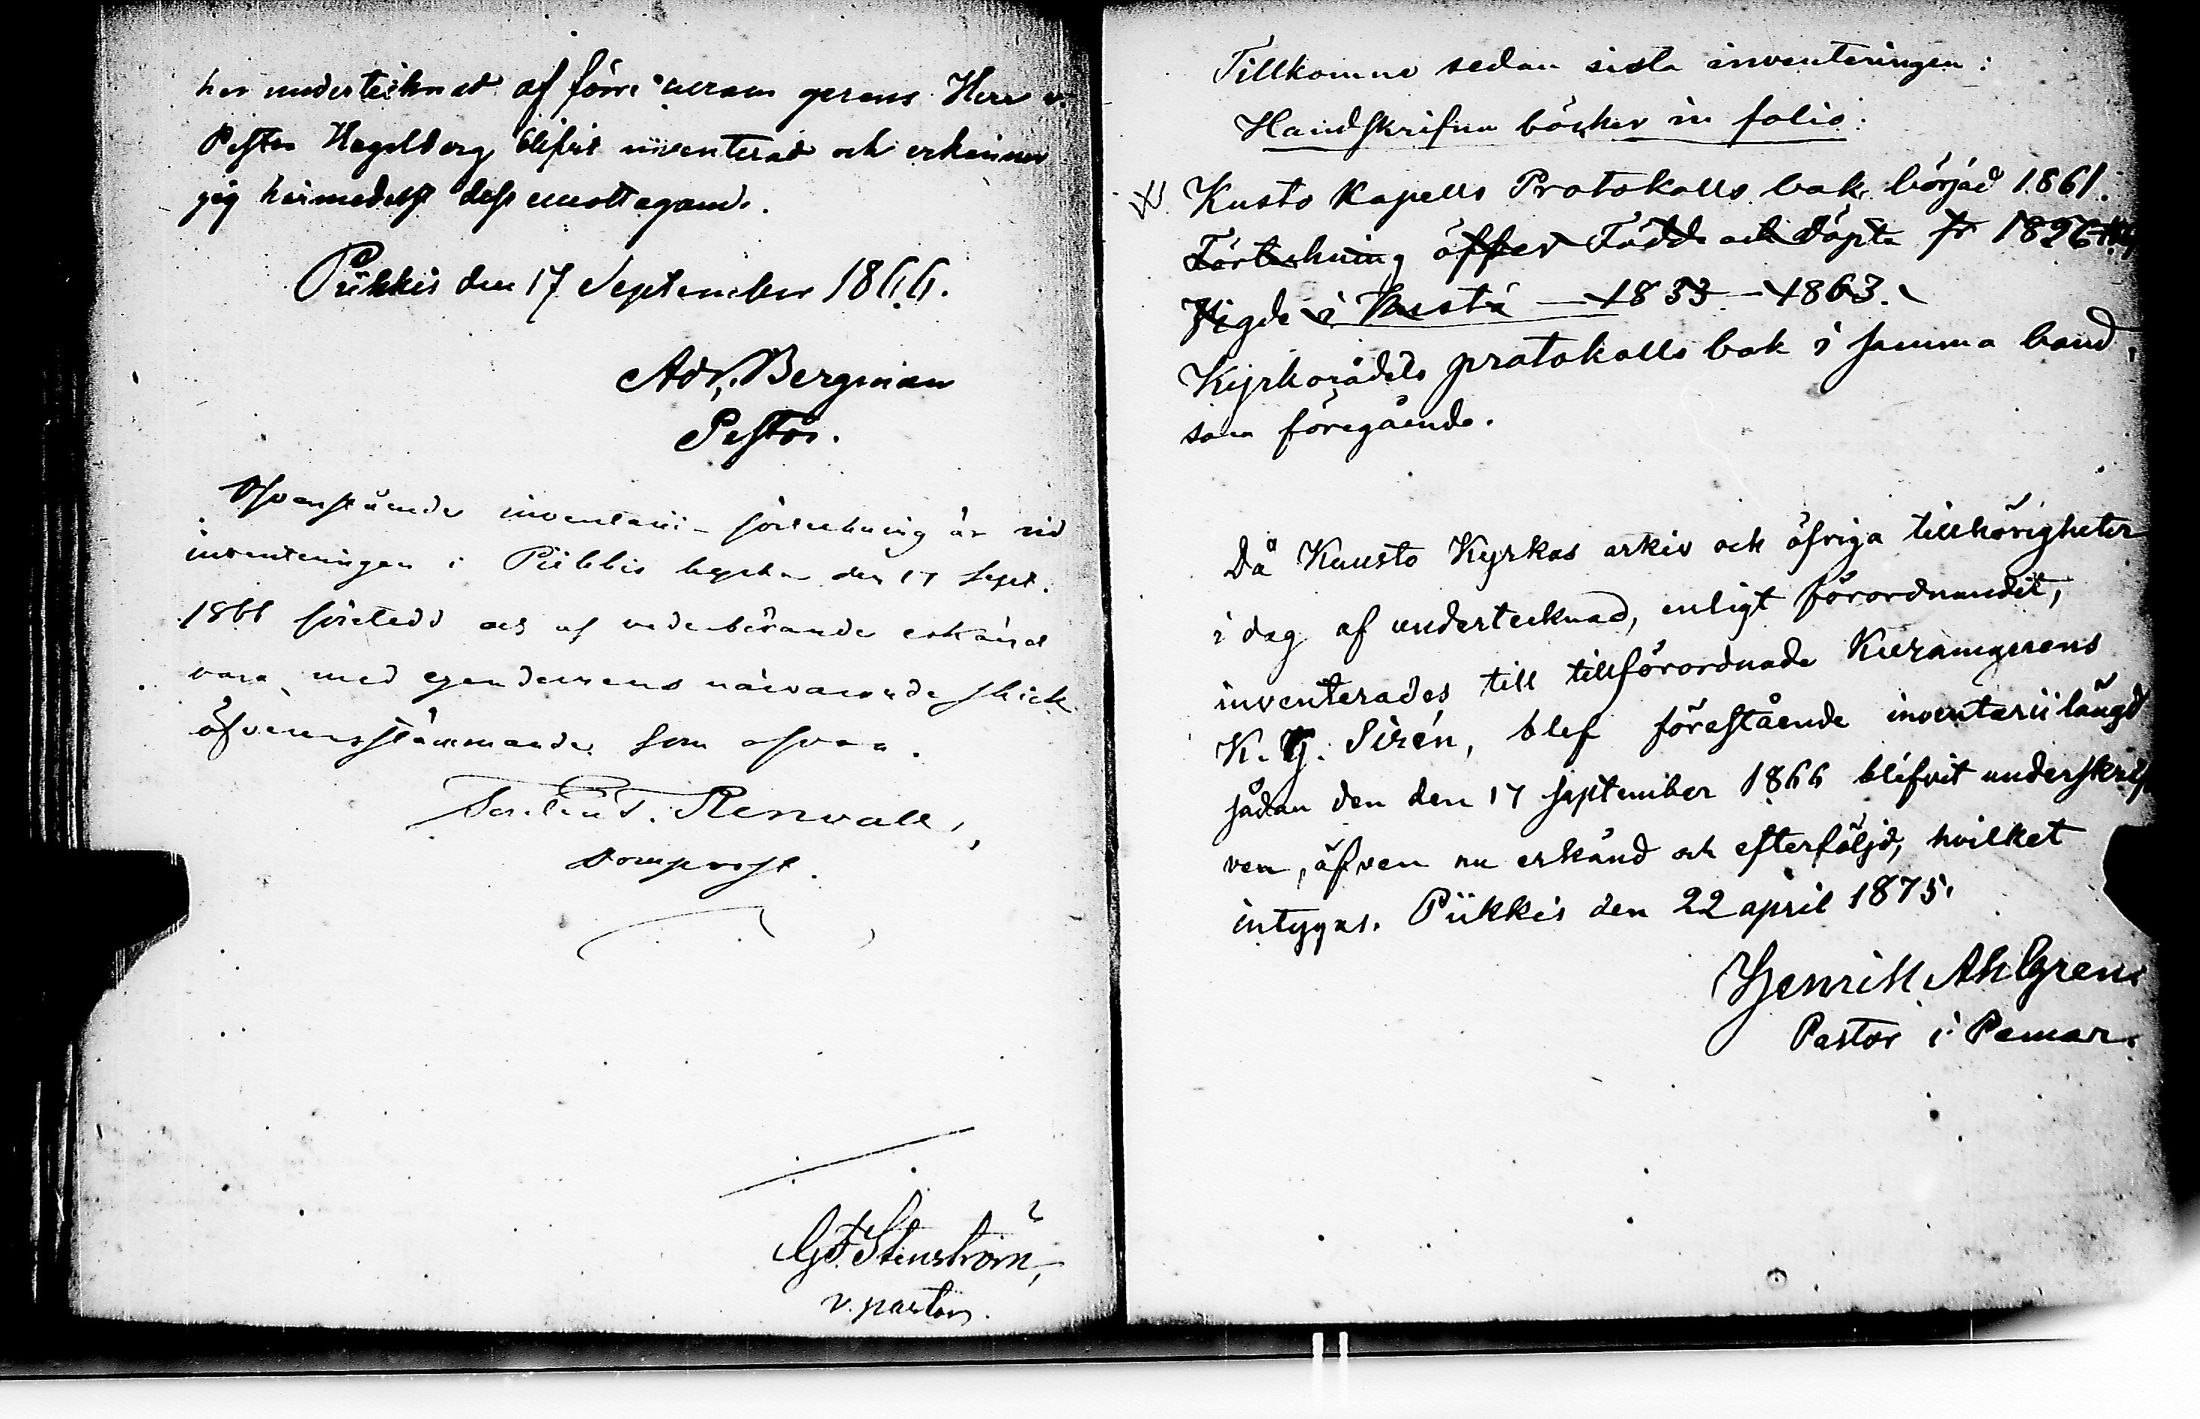 har undertecknad af förre curam gerens Herr v.
Pastor Hagelberg blifvit inventerad och erkänner
jag härmedelst dess emottagande.
Piikkis den 17 September 1866.
Ad. Bergman
Pastor.
Ofvanstående inventarii-förteckning är vid
inventeringen i Piikkis kyrka den 17 Sept.
1866 företedd och af vederbörande erkänd
vara med egendomens närvarande skick
öfverensstämmande som ofvan.
Renvall,
Domprost.
G.F. Stenström,
v. pastor.
Tillkomne sedan sista inventeringen:
Handskrifna böcker in folio:
Kusto Kapells Protokolls bok, börjad 1861.
Förteckning öffver Födde och döpta fr 1826
Vigde i Kustö — 1833 — 1863.
Kyrkorådets protokolls bok i samma band,
som föregående.
Då Kuusto Kyrkas arkiv och öfriga tillhörigheter
i dag af undertecknad, enligt förordnandet,
inventerades till tillförordnade Kuramgerens
K. G. Sirén, blef förestående inventarii längd
sådan den den 17 september 1866 blifvit underskrif
ven, äfven nu erkänd och efterföljd, hvilket
intygas. Piikkis den 22 april 1875.
Henrik Ahlgren
Pastor i Pemar.